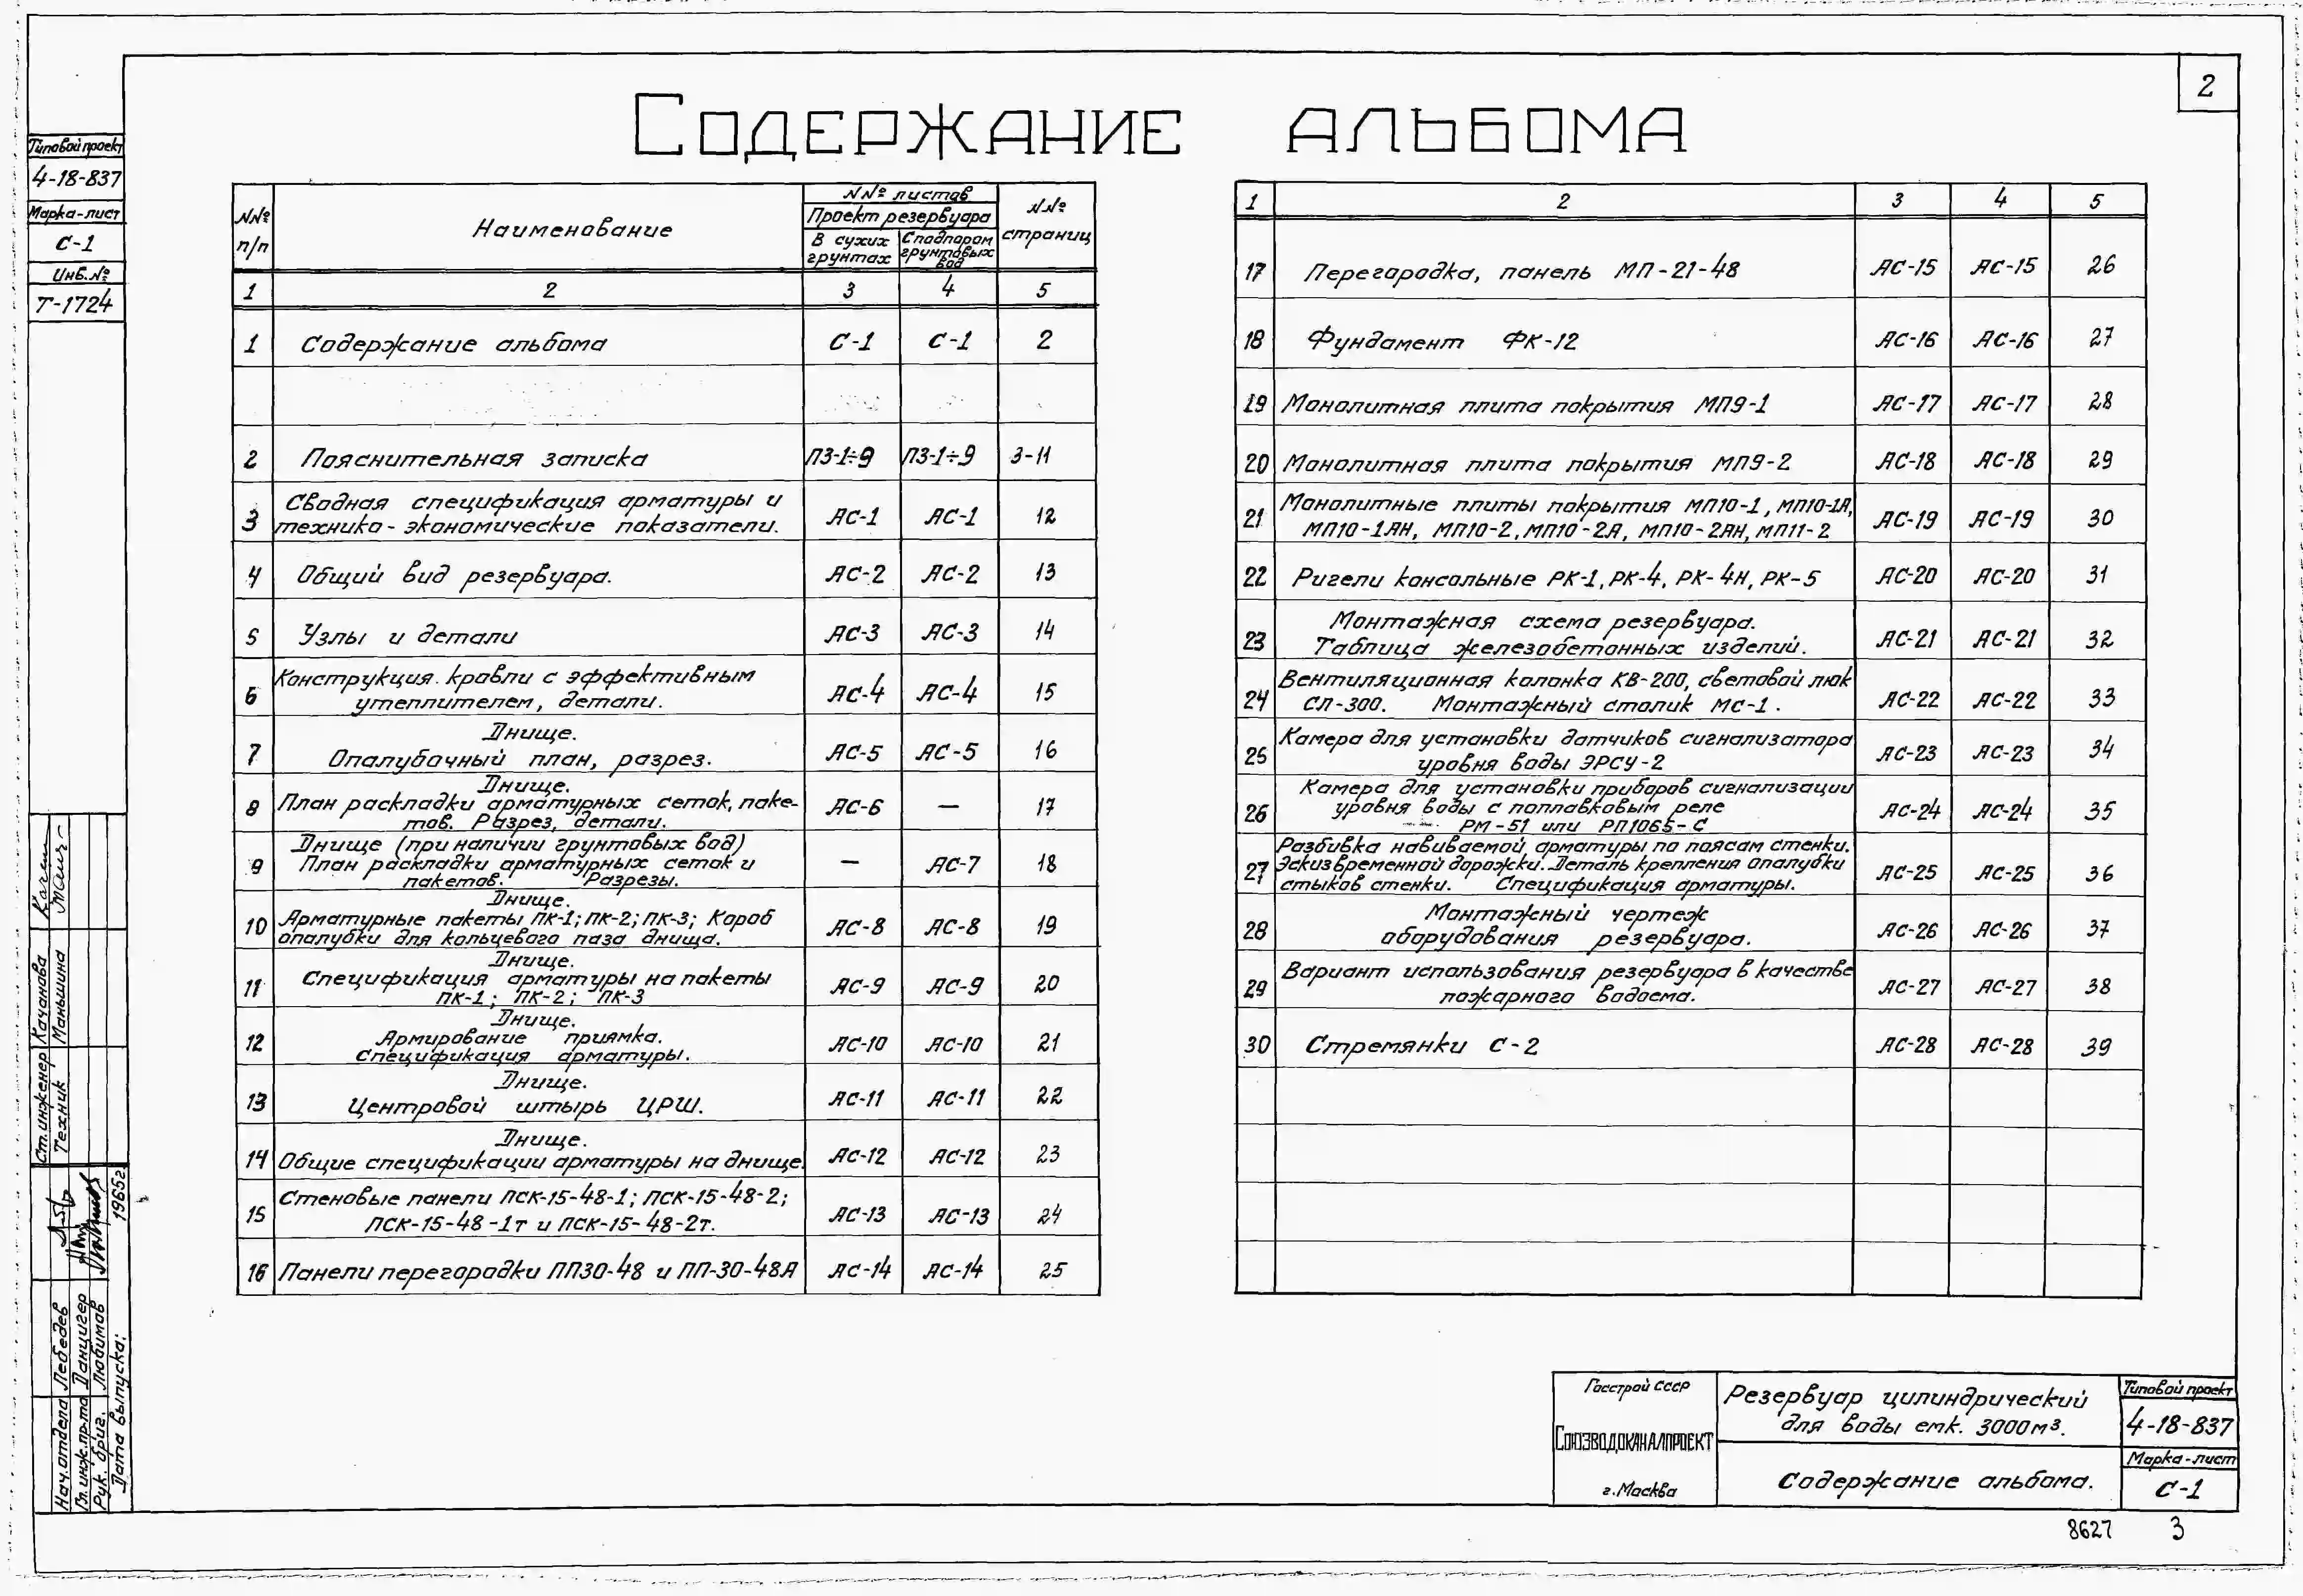 2
Содержание альбома
Типовой проект
4-18-837
Марка-лист
С-1
Инв.№
Т-1724
№№ п/п
Наименование
№№ листов
Проект резервуара
В сухих грунтах
С подпором грунтовых вод
№№ страниц
1 2 3 4 5
1 Содержание альбома С-1 С-1 2
2 Пояснительная записка ПЗ-1÷9 ПЗ-1÷9 3-11
3 Сводная спецификация арматуры и
технико-экономические показатели. АС-1 АС-1 12
4 Общий вид резервуара. АС-2 АС-2 13
5 Узлы и детали АС-3 АС-3 14
6 Конструкция кровли с эффективным
утеплителем, детали. АС-4 АС-4 15
7 Днище.
Опалубочный план, разрез. АС-5 АС-5 16
8 Днище.
План раскладки арматурных сеток, паке-
тов. Разрез, детали. АС-6 — 17
9 Днище (при наличии грунтовых вод)
План раскладки арматурных сеток и
пакетов. Разрезы. — АС-7 18
10 Днище.
Арматурные пакеты ПК-1; ПК-2; ПК-3; Короб
опалубки для кольцевого паза днища. АС-8 АС-8 19
11 Днище.
Спецификация арматуры на пакеты
ПК-1; ПК-2; ПК-3 АС-9 АС-9 20
12 Днище.
Армирование приямка.
Спецификация арматуры. АС-10 АС-10 21
13 Днище.
Центровой штырь ЦРШ. АС-11 АС-11 22
14 Днище.
Общие спецификации арматуры на днище. АС-12 АС-12 23
15 Стеновые панели ПСК-15-48-1; ПСК-15-48-2;
ПСК-15-48-1т и ПСК-15-48-2т. АС-13 АС-13 24
16 Панели перегородки ПП30-48 и ПП-30-48А АС-14 АС-14 25
1 2 3 4 5
17 Перегородка, панель МП-21-48 АС-15 АС-15 26
18 Фундамент ФК-12 АС-16 АС-16 27
19 Монолитная плита покрытия МП9-1 АС-17 АС-17 28
20 Монолитная плита покрытия МП9-2 АС-18 АС-18 29
21 Монолитные плиты покрытия МП10-1, МП10-1А,
МП10-1АН, МП10-2, МП10-2А, МП10-2АН, МП11-2 АС-19 АС-19 30
22 Ригели консольные РК-1, РК-4, РК-4Н, РК-5 АС-20 АС-20 31
23 Монтажная схема резервуара.
Таблица железобетонных изделий. АС-21 АС-21 32
24 Вентиляционная колонка КВ-200, световой люк
СЛ-300. Монтажный столик МС-1. АС-22 АС-22 33
25 Камера для установки датчиков сигнализатора
уровня воды ЭРСУ-2 АС-23 АС-23 34
26 Камера для установки приборов сигнализации
уровня воды с поплавковым реле
РМ-51 или РП1065-С АС-24 АС-24 35
27 Разбивка навиваемой арматуры по поясам стенки.
Эскиз временной дорожки. Деталь крепления опалубки
стыков стенки. Спецификация арматуры. АС-25 АС-25 36
28 Монтажный чертеж
оборудования резервуара. АС-26 АС-26 37
29 Вариант использования резервуара в качестве
пожарного водоема. АС-27 АС-27 38
30 Стремянки С-2 АС-28 АС-28 39
Ст.инженер Качанова
Техник Маньшина
Нач.отдела Лебедев
Гл.инж.пр-та Данцигер
Рук. бриг. Любимов
Дата выпуска: 1965г.
Госстрой СССР
Союзводоканалпроект
г.Москва
Резервуар цилиндрический
для воды емк. 3000м³.
Содержание альбома.
Типовой проект
4-18-837
Марка-лист
С-1
8627 3